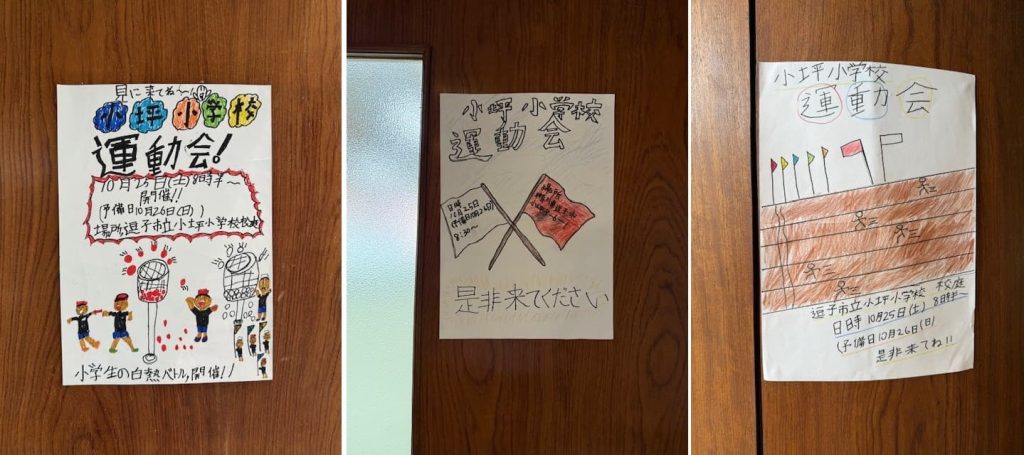 見に来てね〜
小坪小学校
運動会!
10月25日(土)8時半〜
開催!!
(予備日10月26日(日))
場所逗子市立小坪小学校校庭
小学生の白熱バトル開催!!
小坪小学校
運動会
日時
10月25日
(予備日10月26日)
8:30〜
場所
是非来てください
小坪小学校
運動会
逗子市立小坪小学校 校庭
日時 10月25日(土) 8時半
(予備日10月26日(日)
是非来てね!!